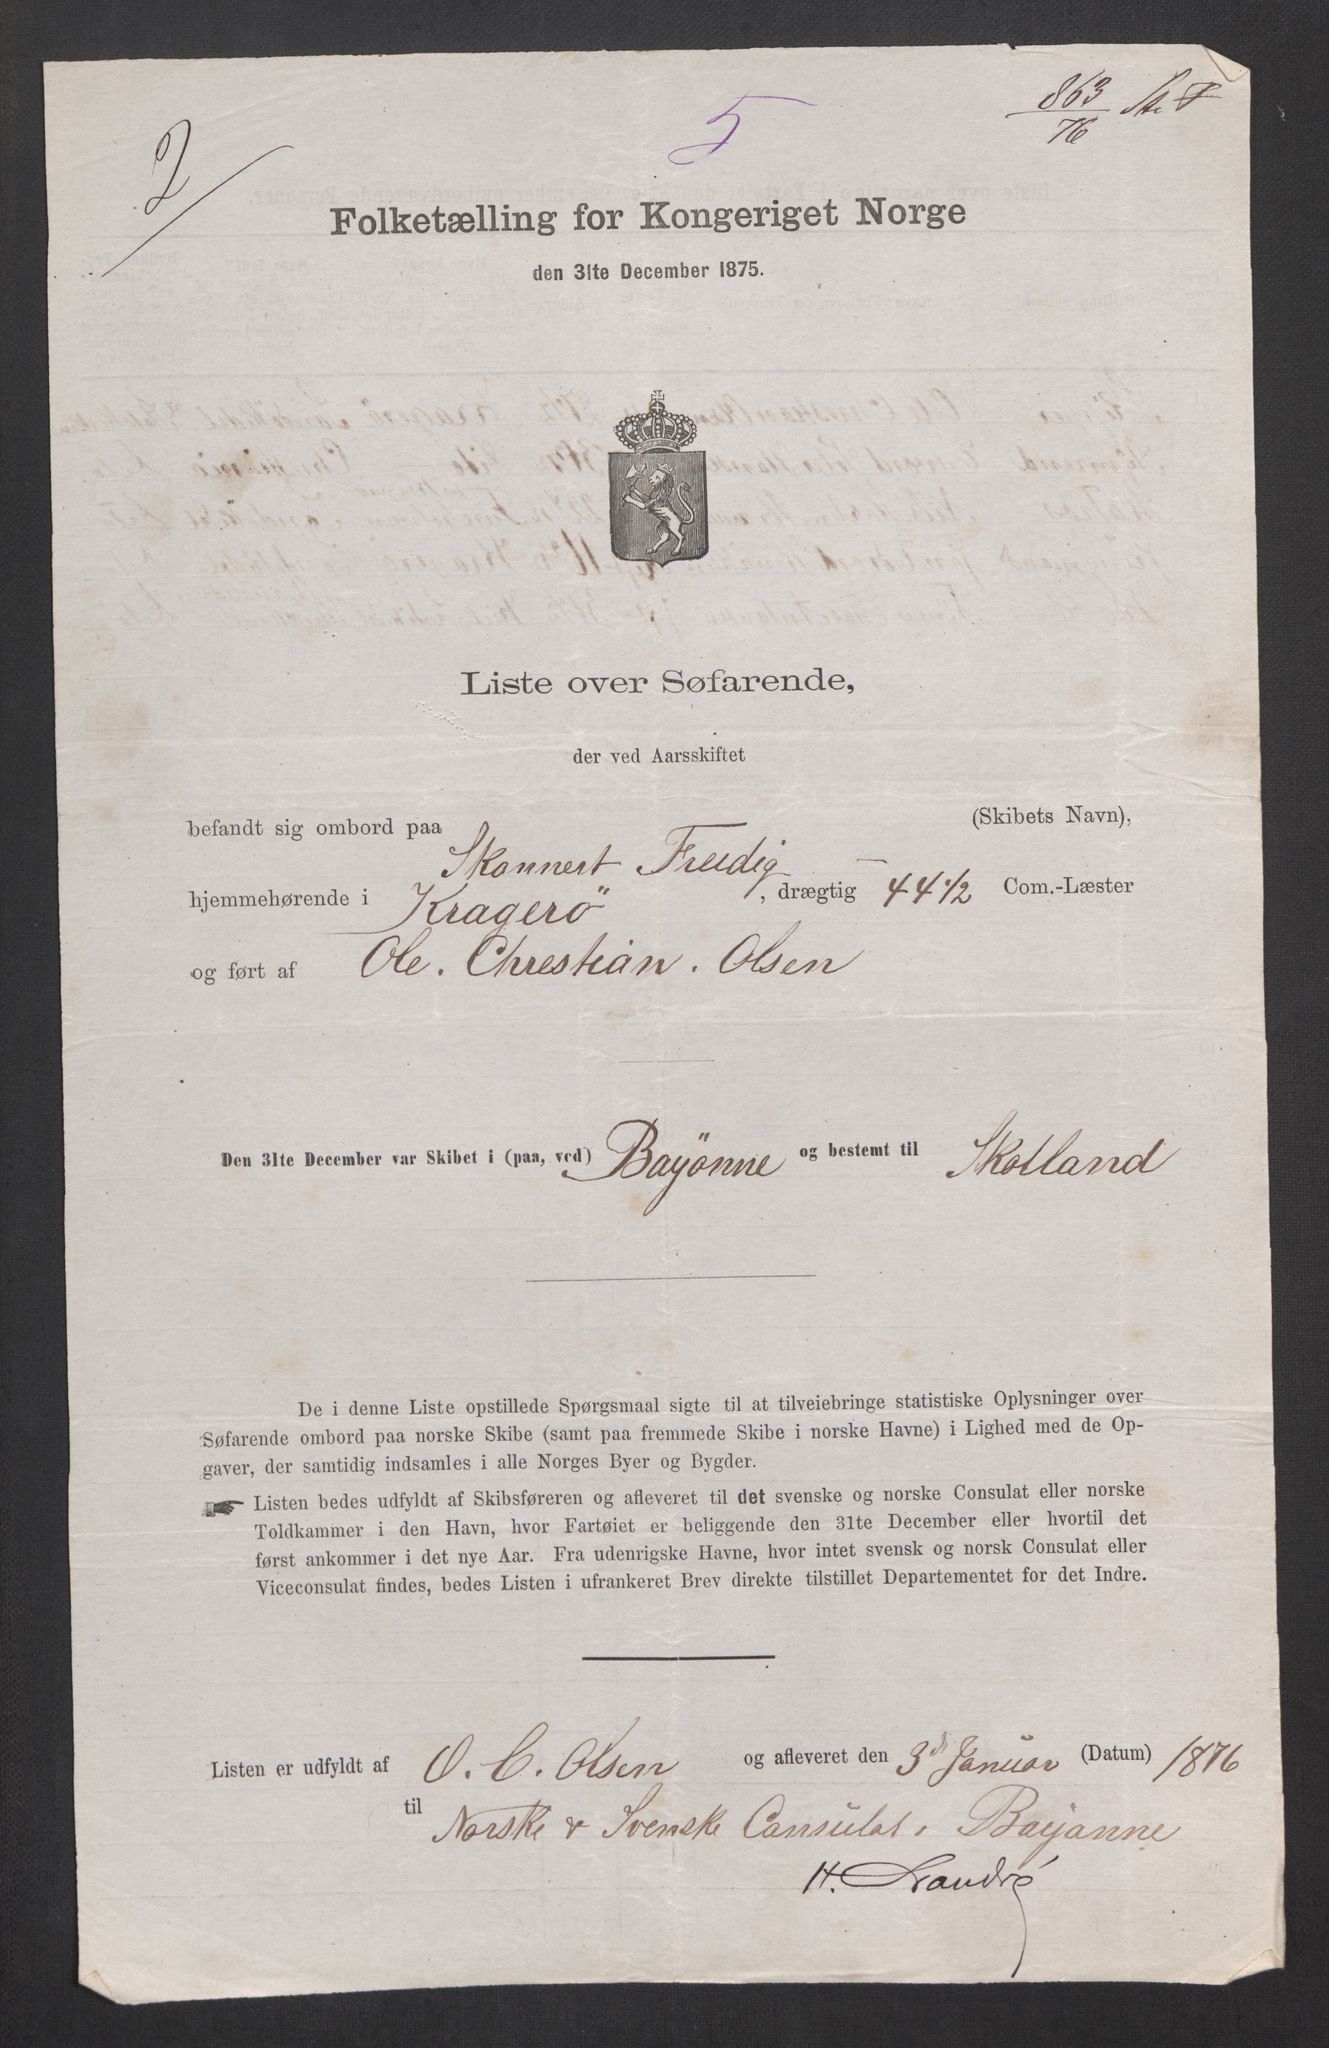 2
5
863
76
Folketælling for Kongeriget Norge
den 31te December 1875.
Liste over Søfarende,
der ved Aarsskiftet
befandt sig ombord paa Skonnert Freidig (Skibets Navn),
hjemmehørende i Kragerö, drægtig 44 1/2 Com.-Læster
og ført af Ole. Chrestian. Olsen
Den 31te December var Skibet i (paa, ved) Bayönne og bestemt til Skotland
De i denne Liste opstillede Spørgsmaal sigte til at tilveiebringe statistiske Oplysninger over
Søfarende ombord paa norske Skibe (samt paa fremmede Skibe i norske Havne) i Lighed med de Op-
gaver, der samtidig indsamles i alle Norges Byer og Bygder.
☛ Listen bedes udfyldt af Skibsføreren og afleveret til det svenske og norske Consulat eller norske
Toldkammer i den Havn, hvor Fartøiet er beliggende den 31te December eller hvortil det
først ankommer i det nye Aar. Fra udenrigske Havne, hvor intet svensk og norsk Consulat eller
Viceconsulat findes, bedes Listen i ufrankeret Brev direkte tilstillet Departementet for det Indre.
Listen er udfyldt af O. C. Olsen og afleveret den 3di Januar (Datum) 1876
til Norske & Svenske Consulat i Bayonne
H.